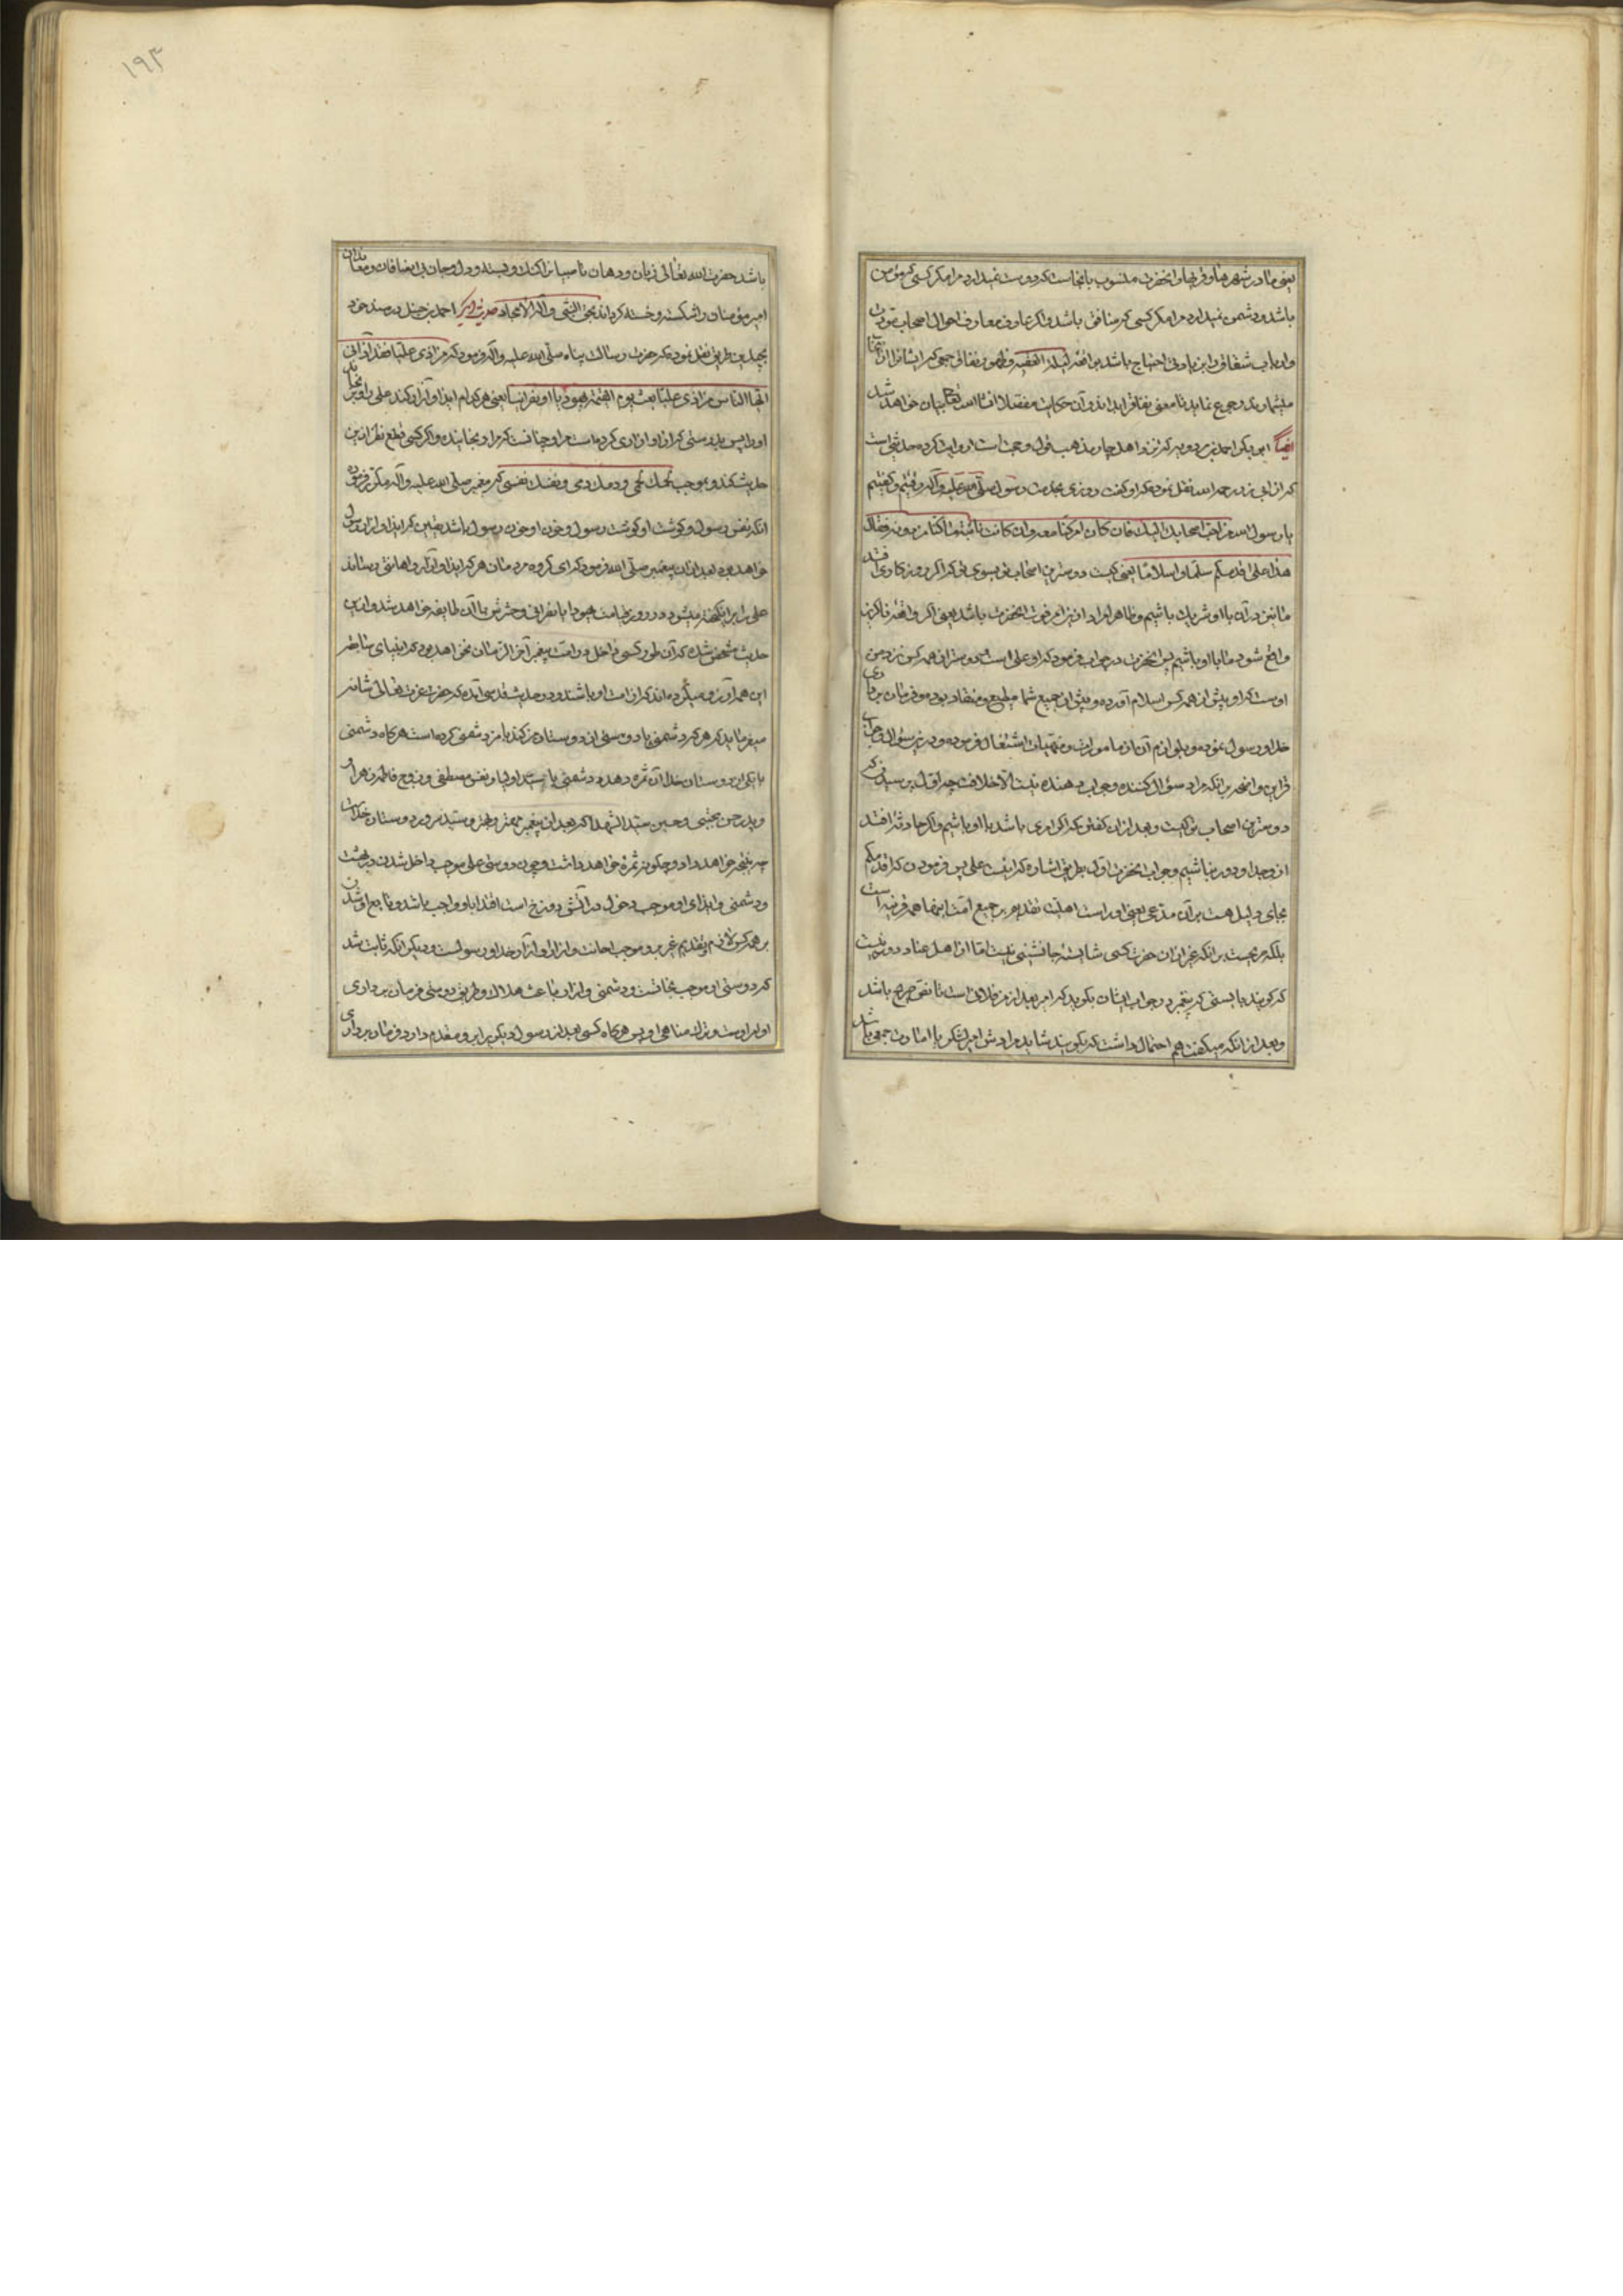 یعنی مادر شهرها و قریها و انحضرت منسوب بانجاست که دوست نمیدارد مرا مکر کسی که مؤمن
باشد و دشمن نمیدارد مرا مکر کسی که منافق باشد و اکر عارف معارف احوال اصحاب
وارباب شقاق و این یاوقی احتیاج باشد بواقعه لیلة العقبه و ظهور نفاق جمعی که ایشانرا از
میشمارند رجوع نماید تا معنی نفاق را بداند و آن حکایت مفصلا انشا الله تعالی بیان خواهد شد
ایضاً ابو بکر احمد بن مردویه که نزد اهل چار مذهب قول او حجت است روایت کرده حدیثی است
که از ابی ذر رحمه الله نقل نموده که او کفت روزی بخدمت رسول صلی الله علیه و آله رفتیم و کفتیم
یا رسول الله من احب اصحابک الیک فان کان امر کنا معه وان کانت نائبة کنا من دونه فقال
هذا علی اقدمکم سلما و اسلاما یعنی کیست دوسترین اصحاب تو بسوی تو که اکر روزکاری افتد
ما نیز در آن با او شریک باشیم و ظاهرا مراد او نیز امر فوت انحضرت باشد یعنی اکر واقعه ناکزیر
واقع شود ما با او باشیم پس انحضرت در جواب فرمود که او علی است دوستر از همه کس نزد من
اوست که او پیش از همه کس اسلام آورده و پیش از جمیع شما مطیع و منقاد بوده و فرمان برداری
خدا و رسول نموده و بلوازم آن از مامورات و منهیات اشتغال فرموده و درین سؤال و جواب
قراین واضحه بر انکه مراد سؤال کننده و جواب دهنده نیست الا خلافت چه اول پرسیدن که
دوسترین اصحاب تو کیست و بعد از ان کفتن که اکر امری باشد با او باشیم و اکر حادثه افتد
از و جدا و دور نباشیم و جواب انحضرت اول بطریق اشاره که اینست علی پس فرمودن که اقدمکم
بجای دلیل هست بر آن مدعی یعنی او راست اهلیت تقدیم بر جمیع امت اینها همه قرینه است
بلکه صریحست بر انکه غیر از ان حضرت کسی شایسته جانشینی نیست اما از اهل عناد دور نیست
که کویند بایستی که پیغمبر در جواب ایشان بکوید که امر بعد از من فلان است تا نص صریح باشد
و بعد از انکه میکفت هم احتمال داشت که بکویند شاید مرادش امیر لشکر یا امارت جمعی باشد
۱۹۴
باشد حضرت الله تعالی زبان و دهان ناصبیانرا کنک و بسته و دل و جان بی انصافان و معاندان
امیر مؤمنان را شکسته و خسته کرداند بحق النبی و آله الامجاد حدیث دیکر احمد بن حنبل در مسند خود
بچندین طریق نقل نموده که حضرت رسالت پناه صلی الله علیه و آله فرمود که من اذی علیا فقد آذانی
ایها الناس من اذی علیا بعث یوم القیمة یهودیا او نصرانیا یعنی هر کدام ایذا و آزار کند علی را و برنجاند
او را پس بدرستی که ایذا و آزار من کرده است مرا و چنانست که مرا رنجانیده و اکر کسی قطع نظر ازین
حدیث کند و بموجب لحمک لحمی و دمک دمی و نفسک نفسی که پیغمبر صلی الله علیه و آله مکرر فرموده
انکه نفس رسول و کوشت او کوشت رسول و خون او خون رسول باشد یقین که ایذا و ازار رسول
خواهد بود بعد از ان پیغمبر صلی الله فرمود که ای کروه مردمان هر که ایذا و آزار و اهانتی رساند
علی را برانکیخته میشود در روز قیامت یهود یا نصرانی و حشرش با آن طایفه خواهد شد و ازین
حدیث مشخص شده که آن طور کسی داخل در امت پیغمبر آخر الزمان نخواهد بود که انبیای سابقه
این همه آرزو میکرده اند که از امت او باشند و در حدیث قدسی آمده که حضرت عزت تعالی شانه
میفرماید که هر که دشمنی با دوستی از دوستان من کند با من دشمنی کرده است هر کاه دشمنی
با یکی از دوستان خدا آن ثمره دهد دشمنی با سید اولیا و نفس مصطفی و زوج فاطمه زهرا
و پدر حسن مجتبی و حسین سید الشهدا که بعد از پیغمبر مهتر و بهتر و سید و سرور دوستان خداست
چه نتیجه خواهد داد و چکونه ثمره خواهد داشت و چون دوستی علی موجب داخل شدن در بهشت
و دشمنی و ایذای او موجب دخول در آتش دوزخ است اقتدا باو واجب باشد و تابع او شدن
بر همه کس لازم و تقدیم غیر برو موجب اهانت و ازار او آزار خدا و رسولست و دیکر انکه ثابت شد
که دوستی او موجب نجاتست و دشمنی و ازار باعث هلاک و طریق دوستی فرمان برداری
اوامر اوست و ترک مناهی او پس هر کاه کسی بعد از رسول دیکری را برو مقدم دارد و فرمان برداری